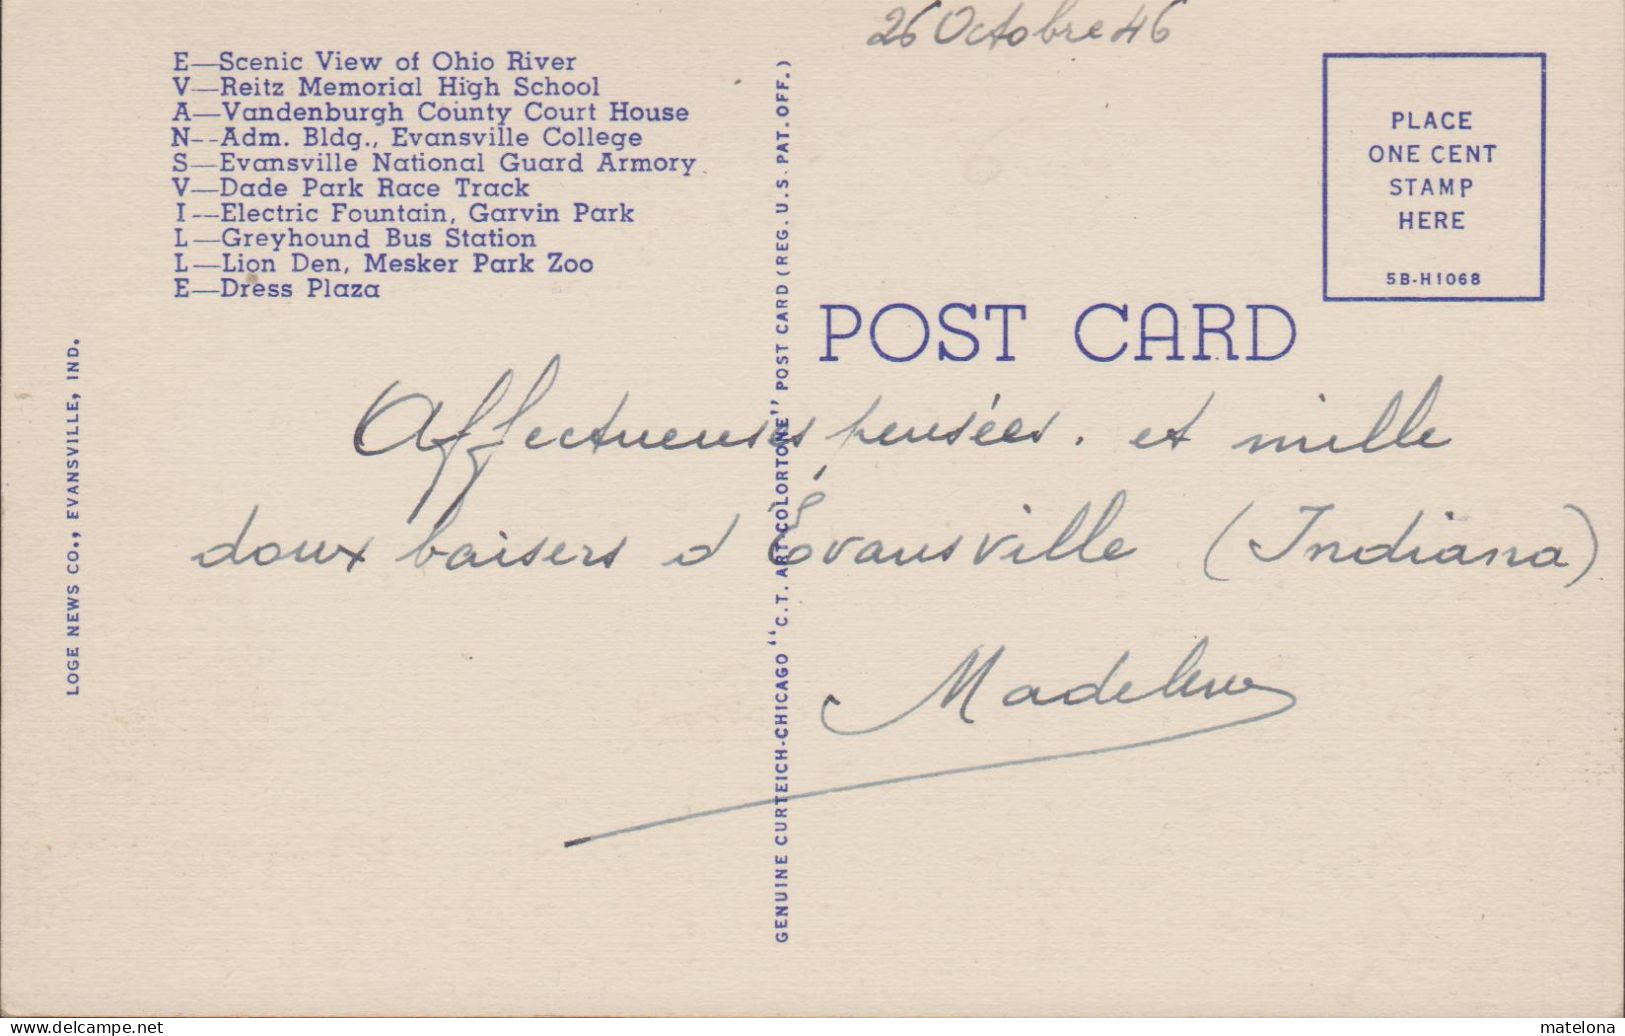 26 Octobre 46
E—Scenic View of Ohio River
V—Reitz Memorial High School
A—Vandenburgh County Court House
N--Adm. Bldg., Evansville College
S—Evansville National Guard Armory
V—Dade Park Race Track
I--Electric Fountain, Garvin Park
L—Greyhound Bus Station
L—Lion Den, Mesker Park Zoo
E—Dress Plaza
PLACE
ONE CENT
STAMP
HERE
5B-H1068
POST CARD
LOGE NEWS CO., EVANSVILLE, IND.
GENUINE CURTEICH-CHICAGO "C.T. ART-COLORTONE" POST CARD (REG. U.S. PAT. OFF.)
Affectueuses pensées. et mille
doux baisers d'Évansville (Indiana)
Madeleine
www.delcampe.net
matelona